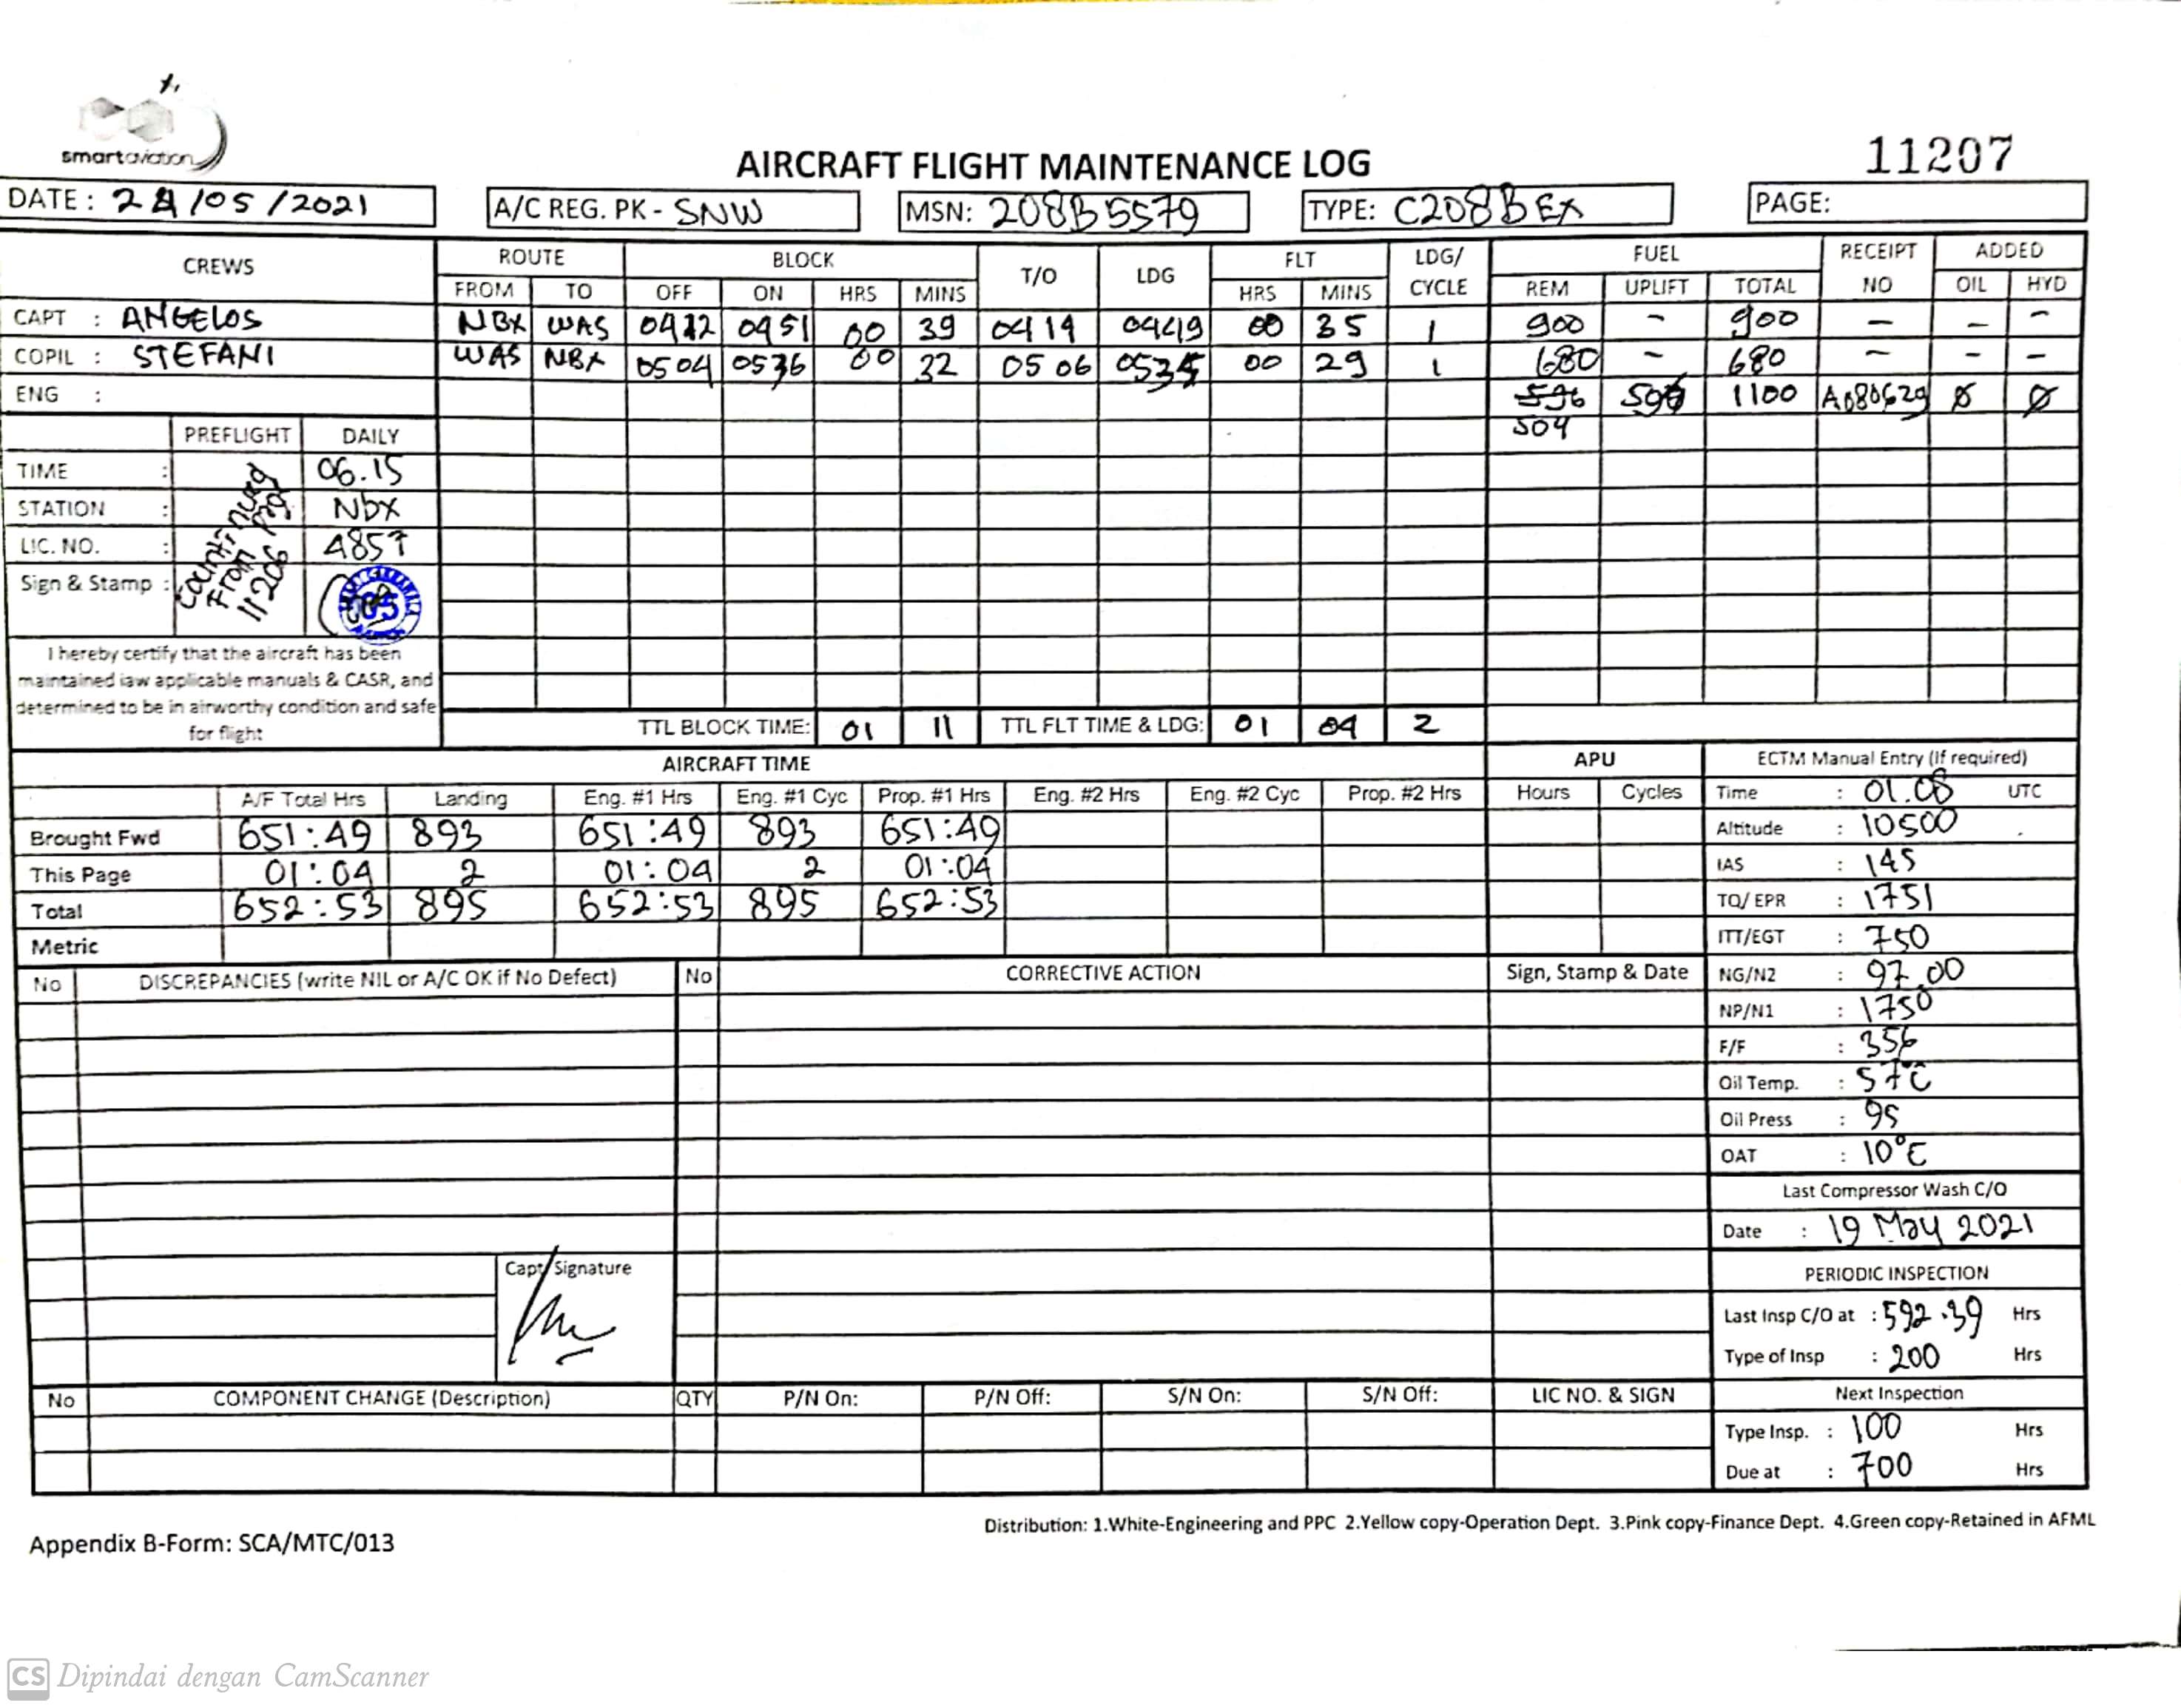 smartaviation
AIRCRAFT FLIGHT MAINTENANCE LOG
11207
DATE : 24/05/2021
A/C REG. PK - SNW
MSN: 208B5579
TYPE: C208B EX
PAGE:
CREWS ROUTE BLOCK T/O LDG FLT LDG/ CYCLE FUEL RECEIPT NO ADDED
FROM TO OFF ON HRS MINS HRS MINS REM UPLIFT TOTAL OIL HYD
CAPT : ANGELOS NBX WAS 0412 0451 00 39 0414 0449 00 35 1 900 - 900 - - -
COPIL : STEFANI WAS NBX 0504 0536 00 32 0506 0535 00 29 1 680 - 680 - - -
ENG : 596 596 1100 A080629 Ø Ø
504
PREFLIGHT DAILY
TIME : 06.15
STATION : Nbx
LIC. NO. : 4857
Sign & Stamp :
Countinued
From pag
11206
I hereby certify that the aircraft has been
maintained iaw applicable manuals & CASR, and
determined to be in airworthy condition and safe
for flight
TTL BLOCK TIME: 01 11 TTL FLT TIME & LDG: 01 04 2
AIRCRAFT TIME APU
A/F Total Hrs Landing Eng. #1 Hrs Eng. #1 Cyc Prop. #1 Hrs Eng. #2 Hrs Eng. #2 Cyc Prop. #2 Hrs Hours Cycles
Brought Fwd 651:49 893 651:49 893 651:49
This Page 01:04 2 01:04 2 01:04
Total 652:53 895 652:53 895 652:53
Metric
ECTM Manual Entry (If required)
Time : 01.08 UTC
Altitude : 10500
IAS : 145
TQ/ EPR : 1751
ITT/EGT : 750
NG/N2 : 97.00
NP/N1 : 1750
F/F : 356
Oil Temp. : 57°C
Oil Press : 95
OAT : 10°C
Last Compressor Wash C/O
Date : 19 May 2021
PERIODIC INSPECTION
Last Insp C/O at : 592.39 Hrs
Type of Insp : 200 Hrs
Next Inspection
Type Insp. : 100 Hrs
Due at : 700 Hrs
No DISCREPANCIES (write NIL or A/C OK if No Defect) No CORRECTIVE ACTION Sign, Stamp & Date
Capt Signature
No COMPONENT CHANGE (Description) QTY P/N On: P/N Off: S/N On: S/N Off: LIC NO. & SIGN
Distribution: 1.White-Engineering and PPC 2.Yellow copy-Operation Dept. 3.Pink copy-Finance Dept. 4.Green copy-Retained in AFML
Appendix B-Form: SCA/MTC/013
CS Dipindai dengan CamScanner